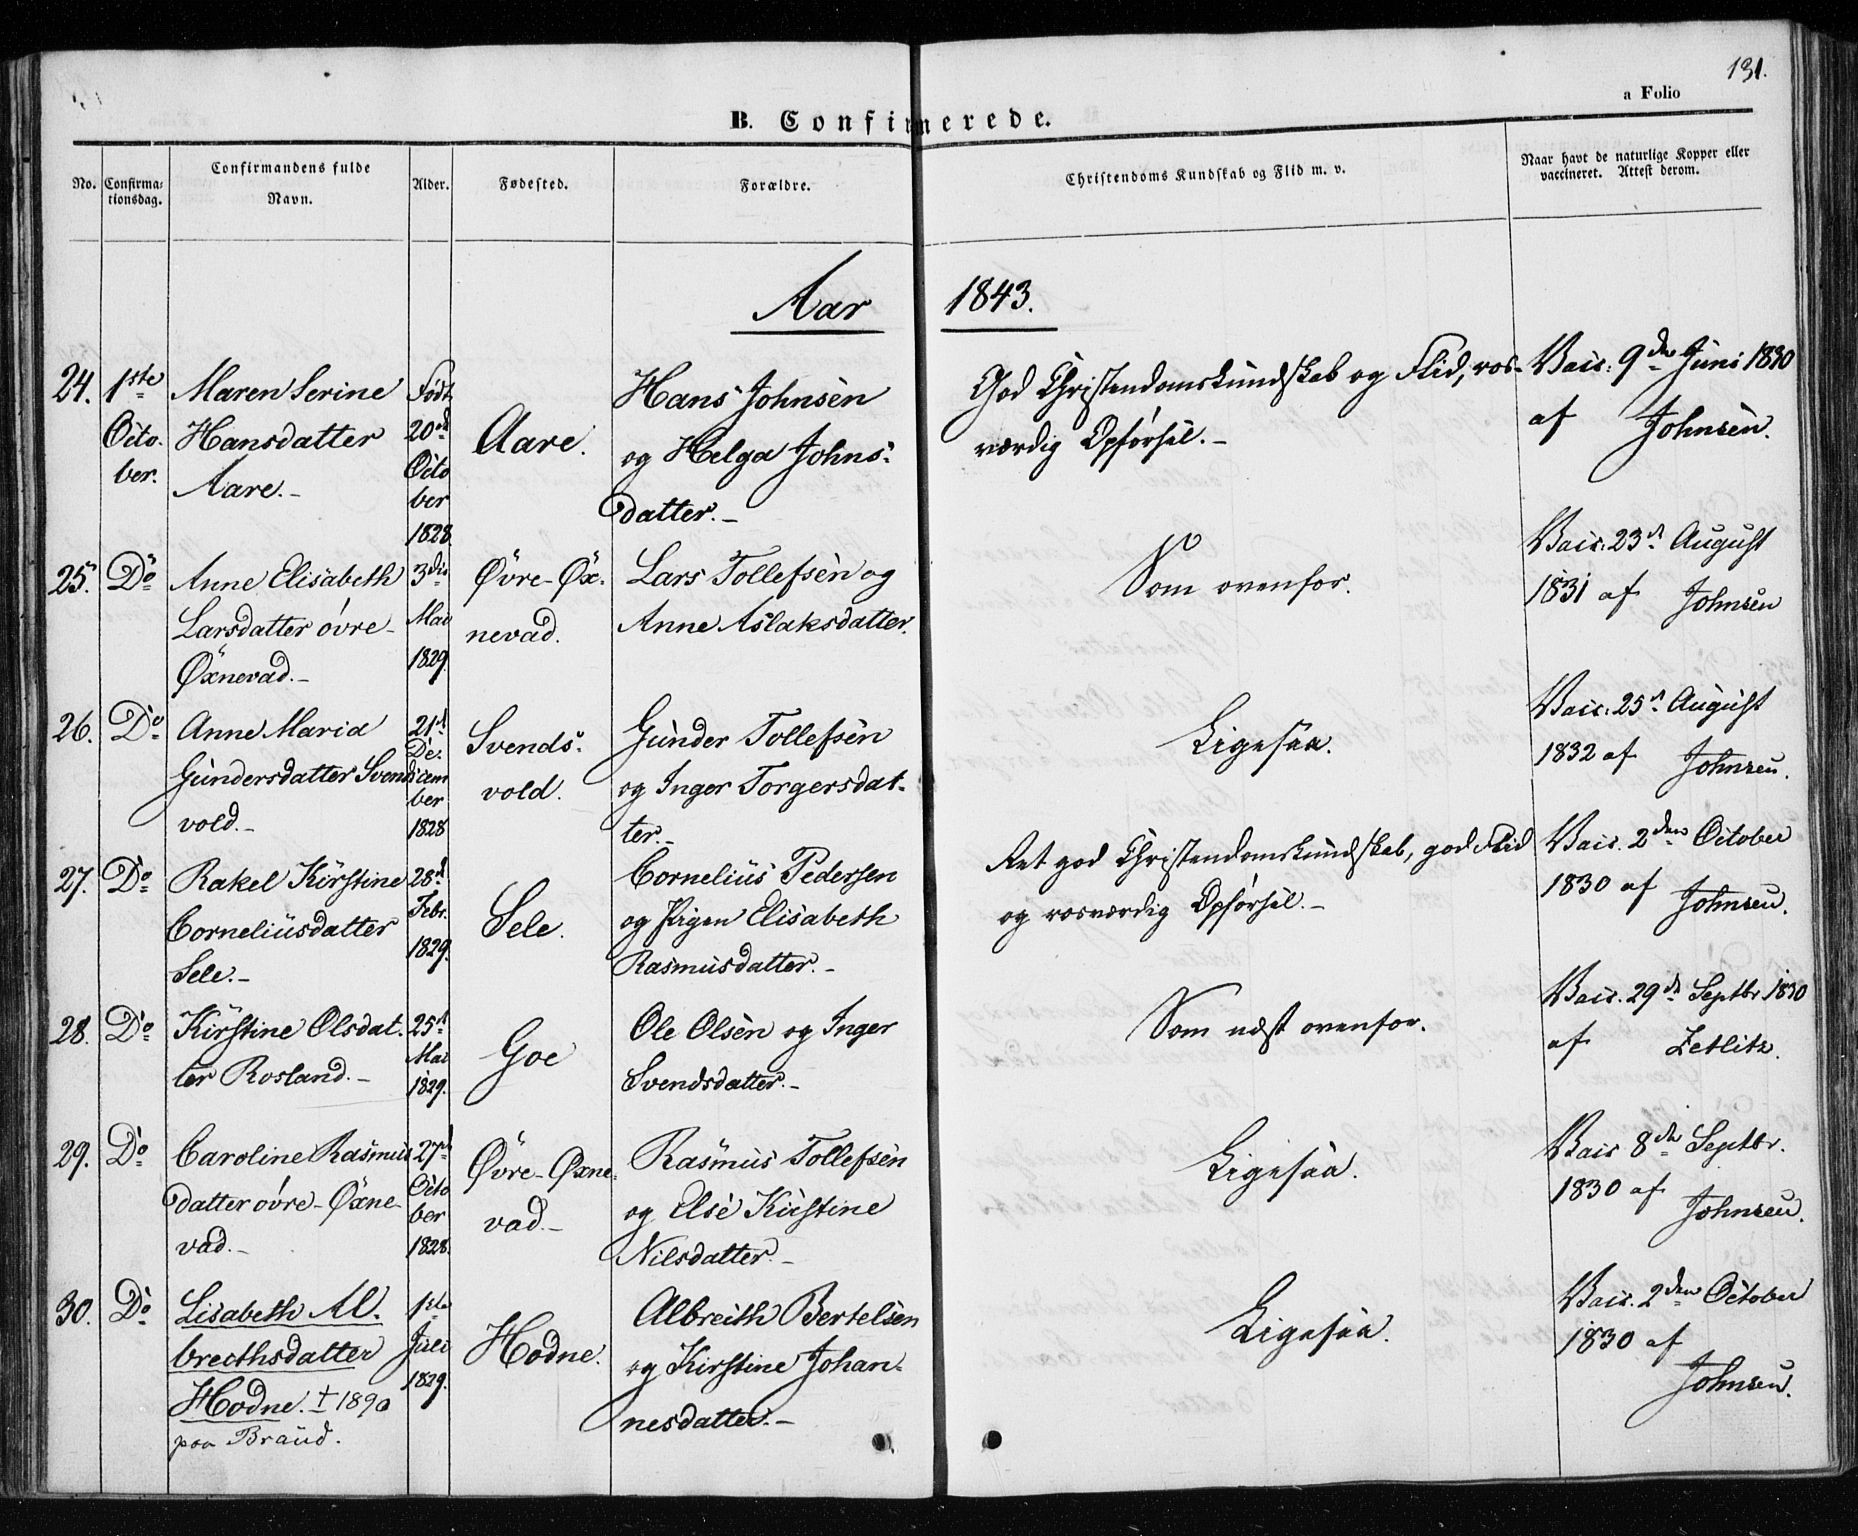 131.
a Folio
B. Confirmerede.
No.
Confirma-
tionsdag.
Confirmandens fulde
Navn.
Alder.
Fødested.
Forældre.
Christendoms Kundskab og Flid m. v.
Naar havt de naturlige Kopper eller
vaccineret. Attest derom.
Aar 1843.
24.
1ste
Octo-
ber.
Maren Serine
Hansdatter
Aare.-
Født
20de
Octo
ber
1828.
Aare.
Hans Johnsen
og Helga Johns-
datter.-
God Christendomskundskab og Flid, ros-
værdig Opførsel.-
Vacc. 9de Juni 1830
af Johnsen.
25.
Do
Anne Elisabeth
Larsdatter øvre-
Øxnevad.-
3die
Mai
1829.
Øvre-Øx-
nevad.
Lars Tollefsen og
Anne Aslaksdatter.
Som ovenfor.
Vacc. 23d August
1831 af Johnsen
26.
Do
Anne Maria
Gundersdatter Svends
vold.-
21d
De-
cem
ber
1828
Svends-
vold.
Gunder Tollefsen
og Inger Torgersdat-
ter.-
Ligesaa.
Vacc. 25d August
1832 af Johnsen.
27.
Do
Rakel Kirstine
Corneliusdatter
Sele.-
28d
Febr.
1829.
Sele.
Cornelius Pedersen
og Elisabeth
Rasmusdatter.-
Ret god Christendomskundskab, god Flid
og rosværdig Opførsel.-
Vacc. 2den October
1830 af Johnsen.
28.
Do
Kirstine Olsdat-
ter Rosland.-
25d
Mai
1829.
Goe
Ole Olsen og Inger
Svendsdatter.-
Som næst ovenfor.
Vacc. 29de Septbr. 1830
af Zetlitz.
29.
Do
Caroline Rasmus
datter øvre-Øxne-
vad.-
27d
Octo
ber
1828.
Øvre-Øxne-
vad.-
Rasmus Tollefsen
og Else Kirstine
Nilsdatter.-
Ligesaa.
Vacc 8de Septbr.
1830 af Johnsen.
30.
Do
Lisabeth Al-
brecthsdatter
Hodne. ‡ 1890
paa Braud.
1ste
Juli
1829.
Hodne.
Albreith Bertelsen
og Kirstine Johan-
nesdatter.-
Ligesaa.
Vacc. 2den October
1830 af
Johnsen.